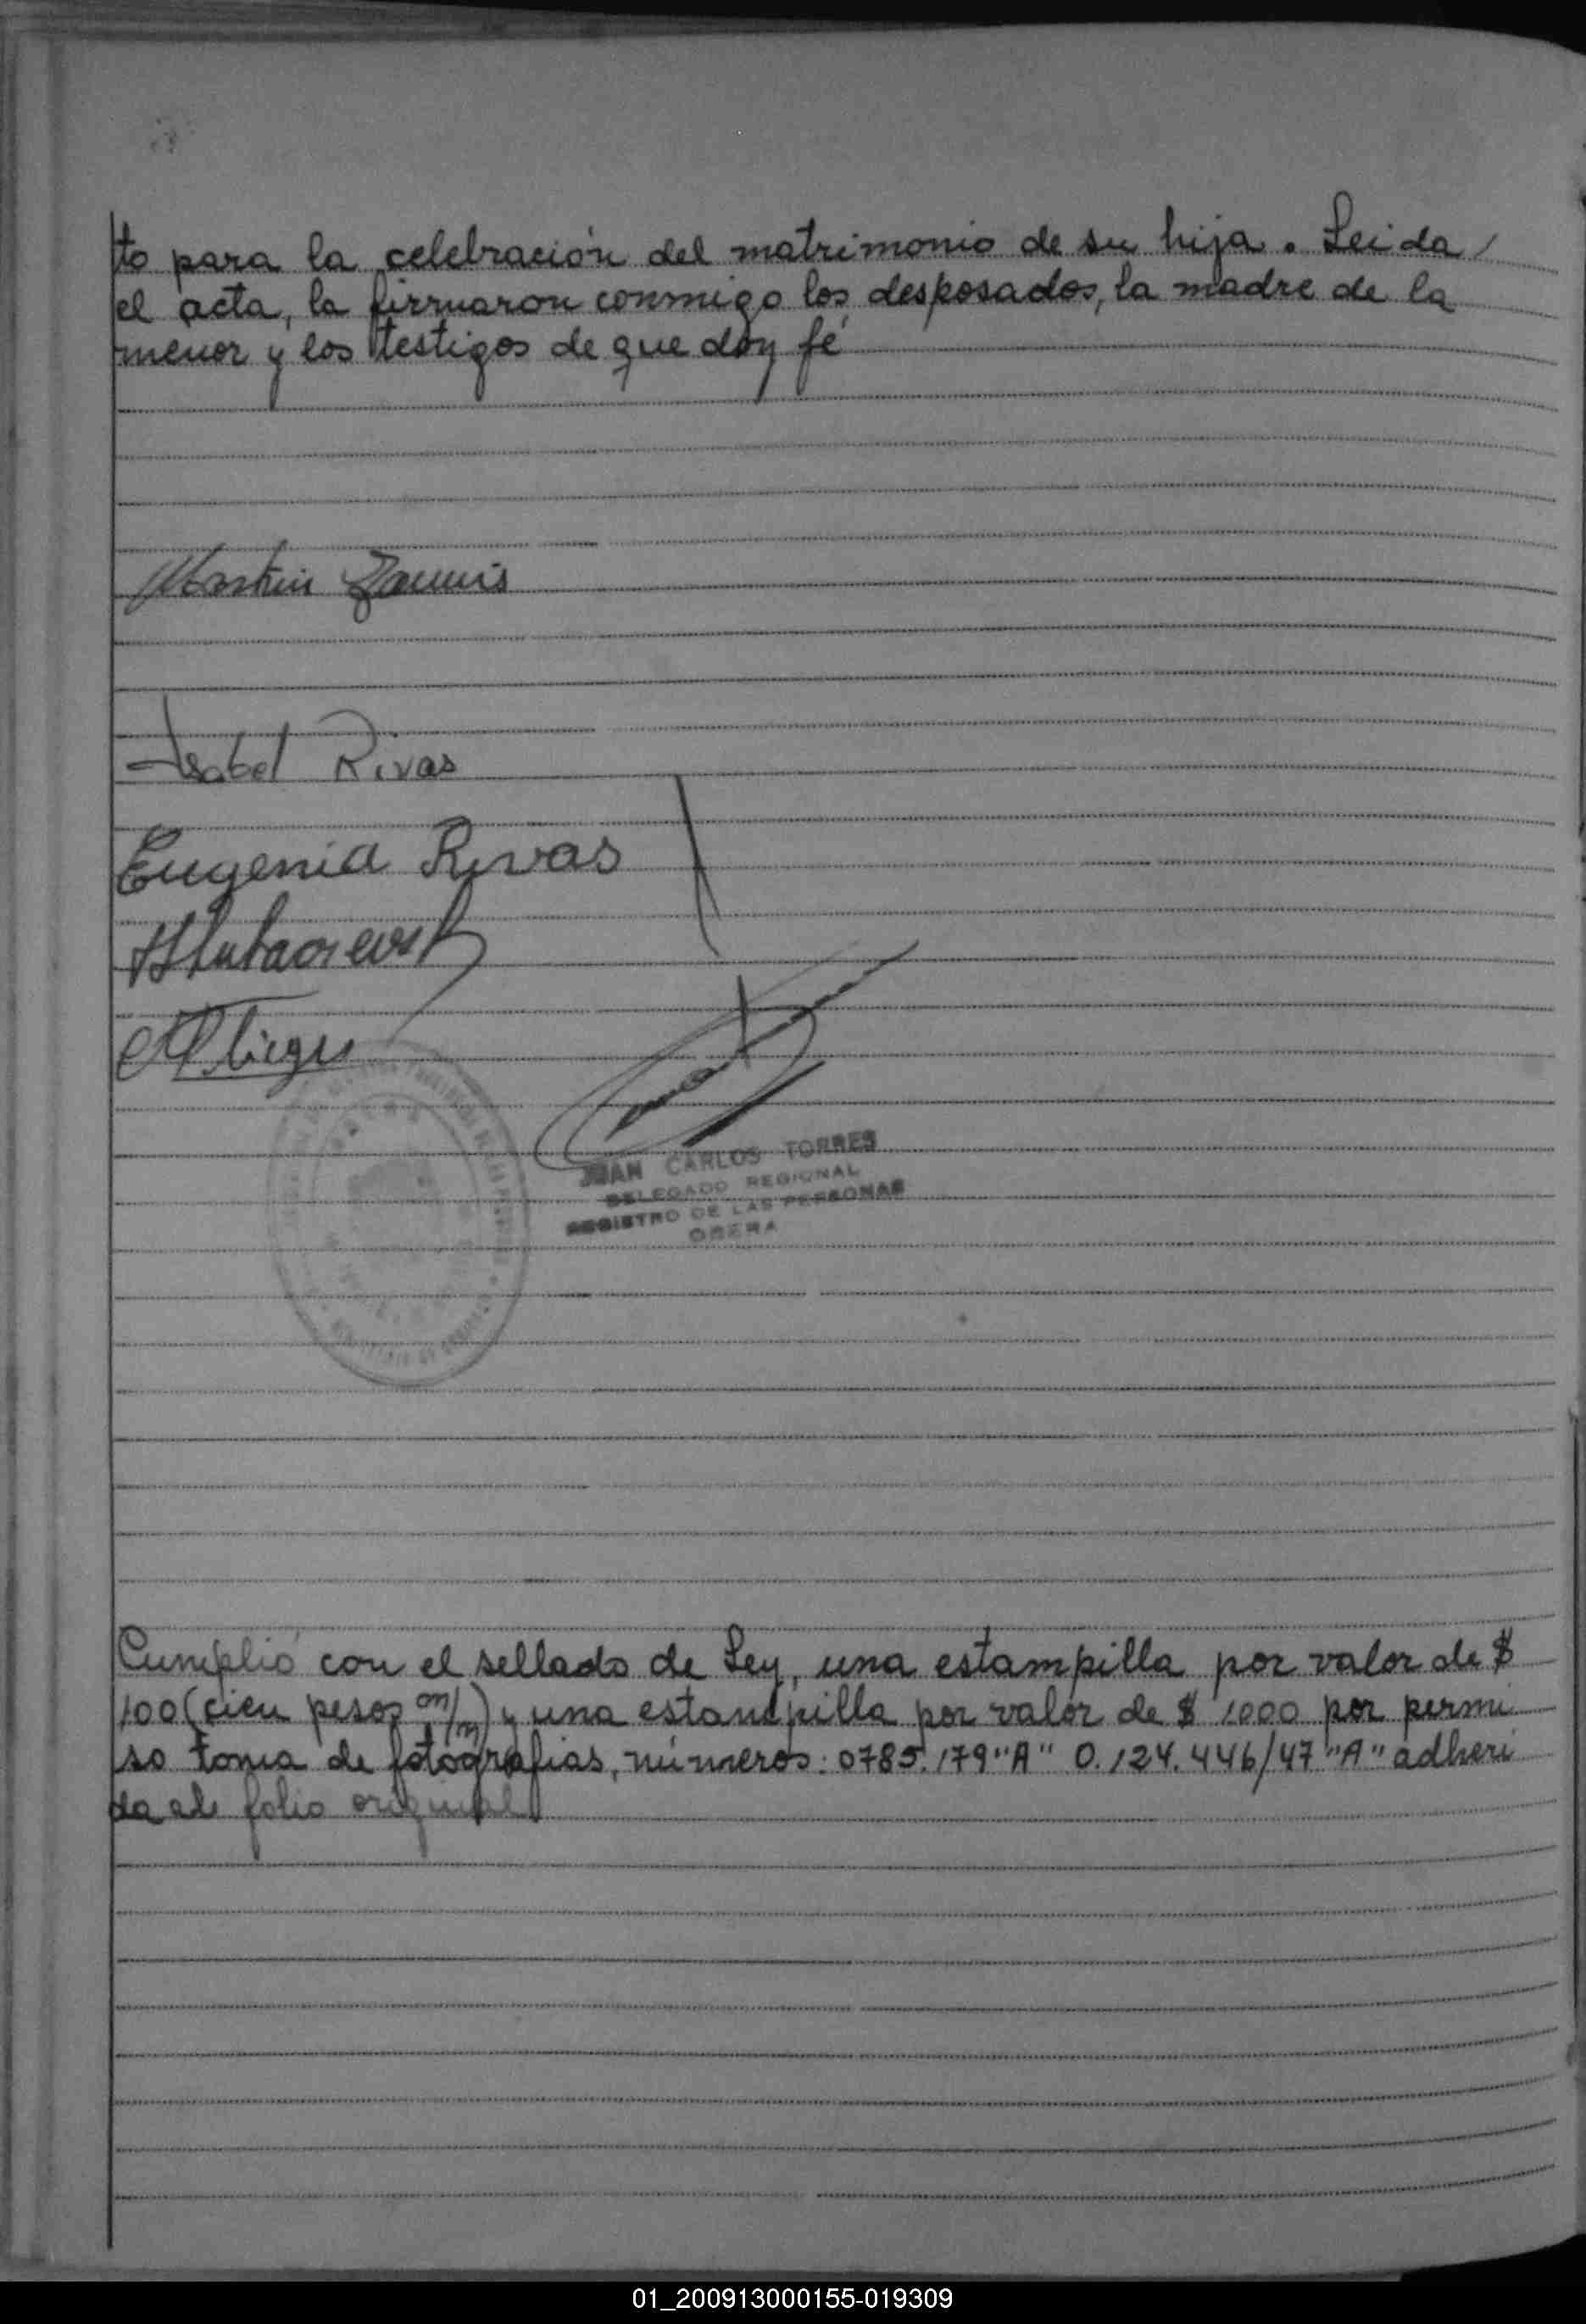 to para la celebración del matrimonio de su hija. Leida/
el acta, la firmaron conmigo los desposados, la madre de la
menor y los testigos de que doy fé
Martin
Isabel Rivas
Eugenia Rivas
JUAN CARLOS TORRES
DELEGADO REGIONAL
REGISTRO DE LAS PERSONAS
OBERA
Cumplió con el sellado de Ley, una estampilla por valor de $
100 (cien pesos m/m) y una estampilla por valor de $ 1000 por permi
so toma de fotografias, números: 0785.179 "A" 0.124.446/47 "A" adheri
da al folio original
01_200913000155-019309